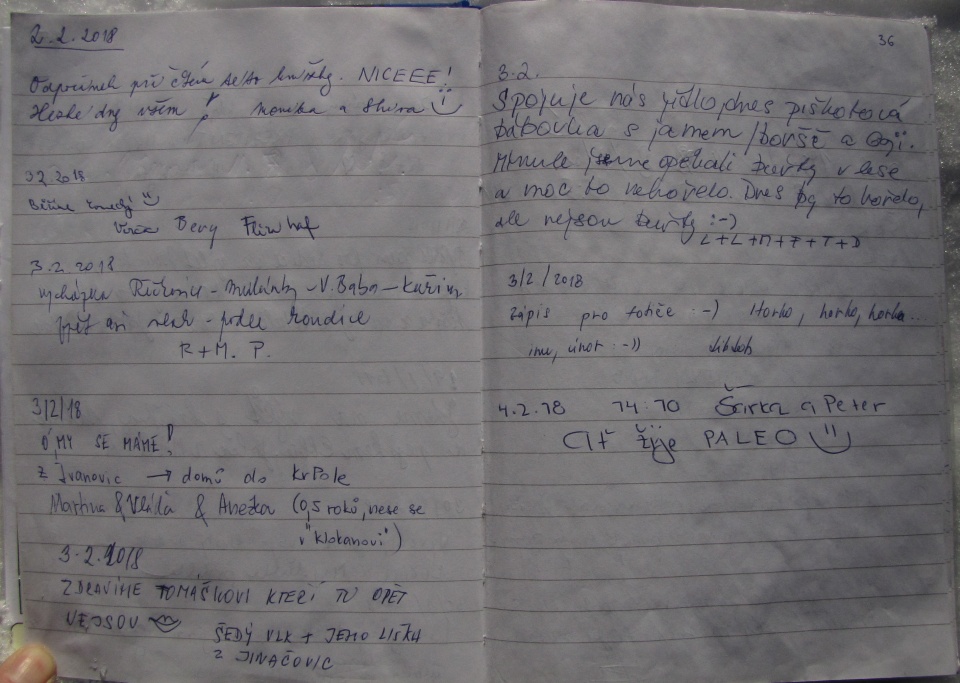 2.2.2018
Odpočinek při čtení této knížky. NICEEE!
Hezké dny všem! Monika a
3.2.2018
Běžíme
3.2.2018
vycházka - - V. Baba - Kuřim
zpět - podle
R + M. P.
3/2/18
Ó, MY SE MÁME!
z Ivanovic → domů do KrPole
Martina & Vláďa & Anežka (0,5 roků, nese se
v "klokanovi")
3.2.2018
ZDRAVÍME TOMÁŠKOVI KTEŘÍ TU OPĚT
NEJSOU
ŠEDÝ VLK + JEHO LIŠKA
Z JINAČOVIC
36
3.2.
Spojuje nás jídlo, dnes piškotová
bábovka s jamem / boršč a
Minule jsme opékali buřty v lese
a moc to nehořelo. Dnes by to hořelo,
ale nejsou buřty :-)
L+L+M+F+T+D
3/2/2018
zápis pro totiče :-) Horko, horko, horko...
inu, únor :-))
4.2.18 14:10 Šárka a Peter
Ať žije PALEO